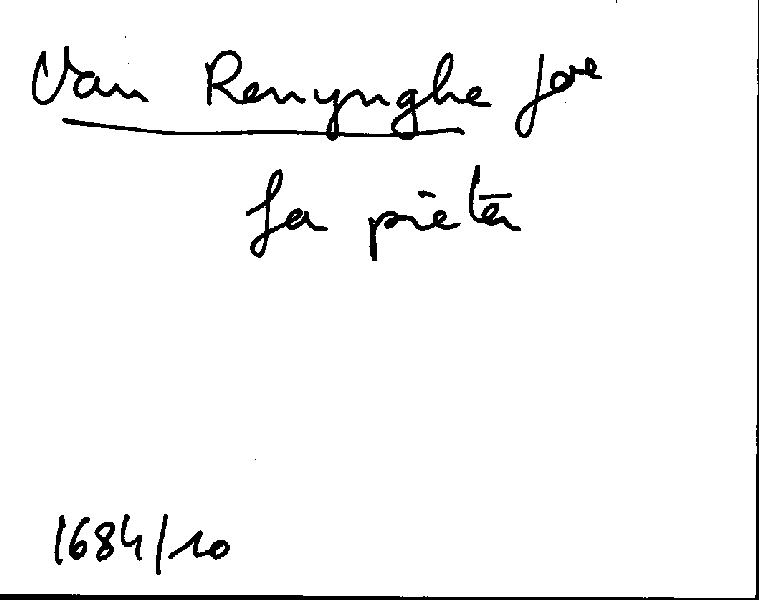 Van Renynghe Jore
La pieta
1684/10